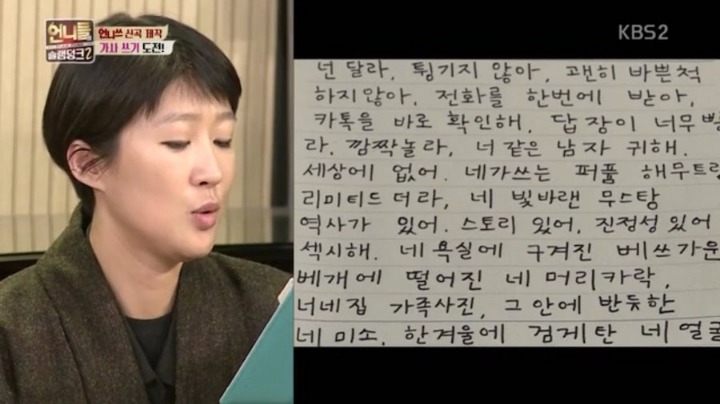 언니들
슬램덩크2
언니쓰 신곡 제작
가사 쓰기 도전!
KBS2
넌 달라, 튕기지 않아, 괜히 바쁜척
하지않아. 전화를 한번에 받아,
카톡을 바로 확인해. 답장이 너무 빨
라. 깜짝놀라, 너 같은 남자 귀해.
세상에 없어. 네가쓰는 퍼품
리미티드 더라, 네 빛바랜 무스탕
역사가 있어. 스토리 있어, 진정성 있어
섹시해. 네 욕실에 구겨진 베쓰가운
베개에 떨어진 네 머리카락,
너네집 가족사진, 그 안에 반듯한
네 미소. 한겨울에 검게 탄 네 얼굴